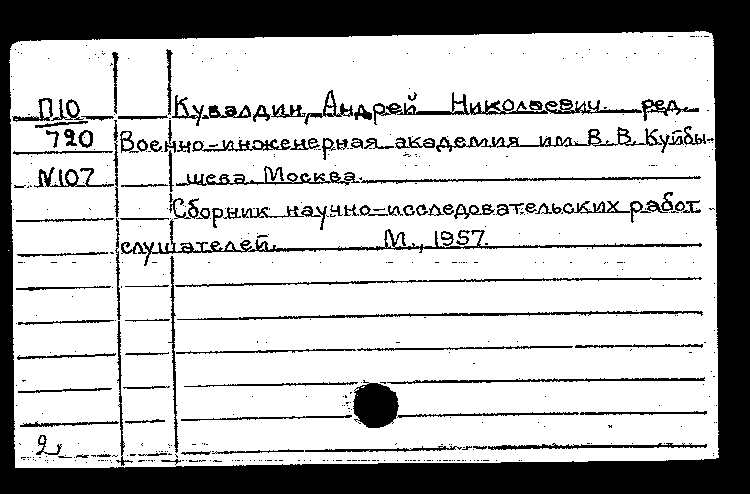 П10 Кувалдин, Андрей Николаевич. ред.
720 Военно-инженерная академия им. В. В. Куйбы-
N107 шева. Москва.
Сборник научно-исследовательских работ
слушателей. М., 1957.
2,